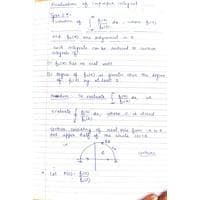 Evaluation of improper integral
Type I :
Evaluation of ∫ f₁(x)/f₂(x) dx, where f₁(x)
and f₂(x) are polynomial in x
such integrals can be reduced to contour
integrals if
(i) f₂(x) has no real root
(ii) degree of f₂(x) is greater than the degree
of f₁(x) by at least 2.
To evaluate ∫ f₁(x)/f₂(x) dx we
evaluate ∫ f₁(z)/f₂(z) dz, where C is closed
contour consisting of real axis from -R to R
and upper half of the circle |z|=R
C
Let F(z) = f₁(z)/f₂(z)